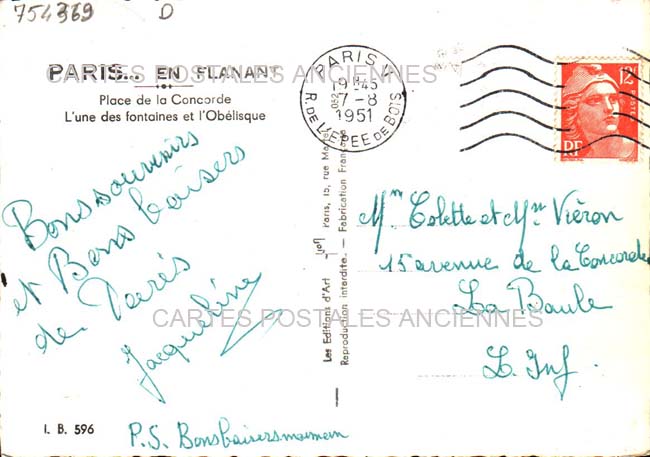 754369 D
PARIS... EN FLANANT
CARTES POSTALES ANCIENNES
Place de la Concorde
L'une des fontaines et l'Obélisque
PARIS
19H45
7-8
1951
R. DE L'EPEE DE BOIS
12F
POSTES
RF
Bons souvenirs
et Bons baisers
de Paris
Jacqueline
Les Editions d'Art
Paris, 15, rue
Reproduction interdite. — Fabrication Française
Mme Colette et Mr Viéron
15 avenue de la Concorde
La Baule
L. Inf.
CARTES POSTALES ANCIENNES
I. B. 596
P.S. Bons baisers maman